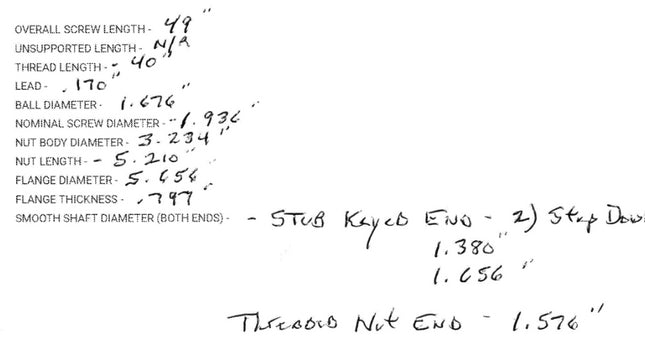 OVERALL SCREW LENGTH - 49"
UNSUPPORTED LENGTH - N/A
THREAD LENGTH - - 40"
LEAD - .170"
BALL DIAMETER - 1.676"
NOMINAL SCREW DIAMETER - - 1.936"
NUT BODY DIAMETER - 3.234"
NUT LENGTH - - 5.210"
FLANGE DIAMETER - 5.656"
FLANGE THICKNESS - .797"
SMOOTH SHAFT DIAMETER (BOTH ENDS) - - STUB Keyed END - 2) Step Down
1.380"
1.656"
THREADED Nut END - 1.576"